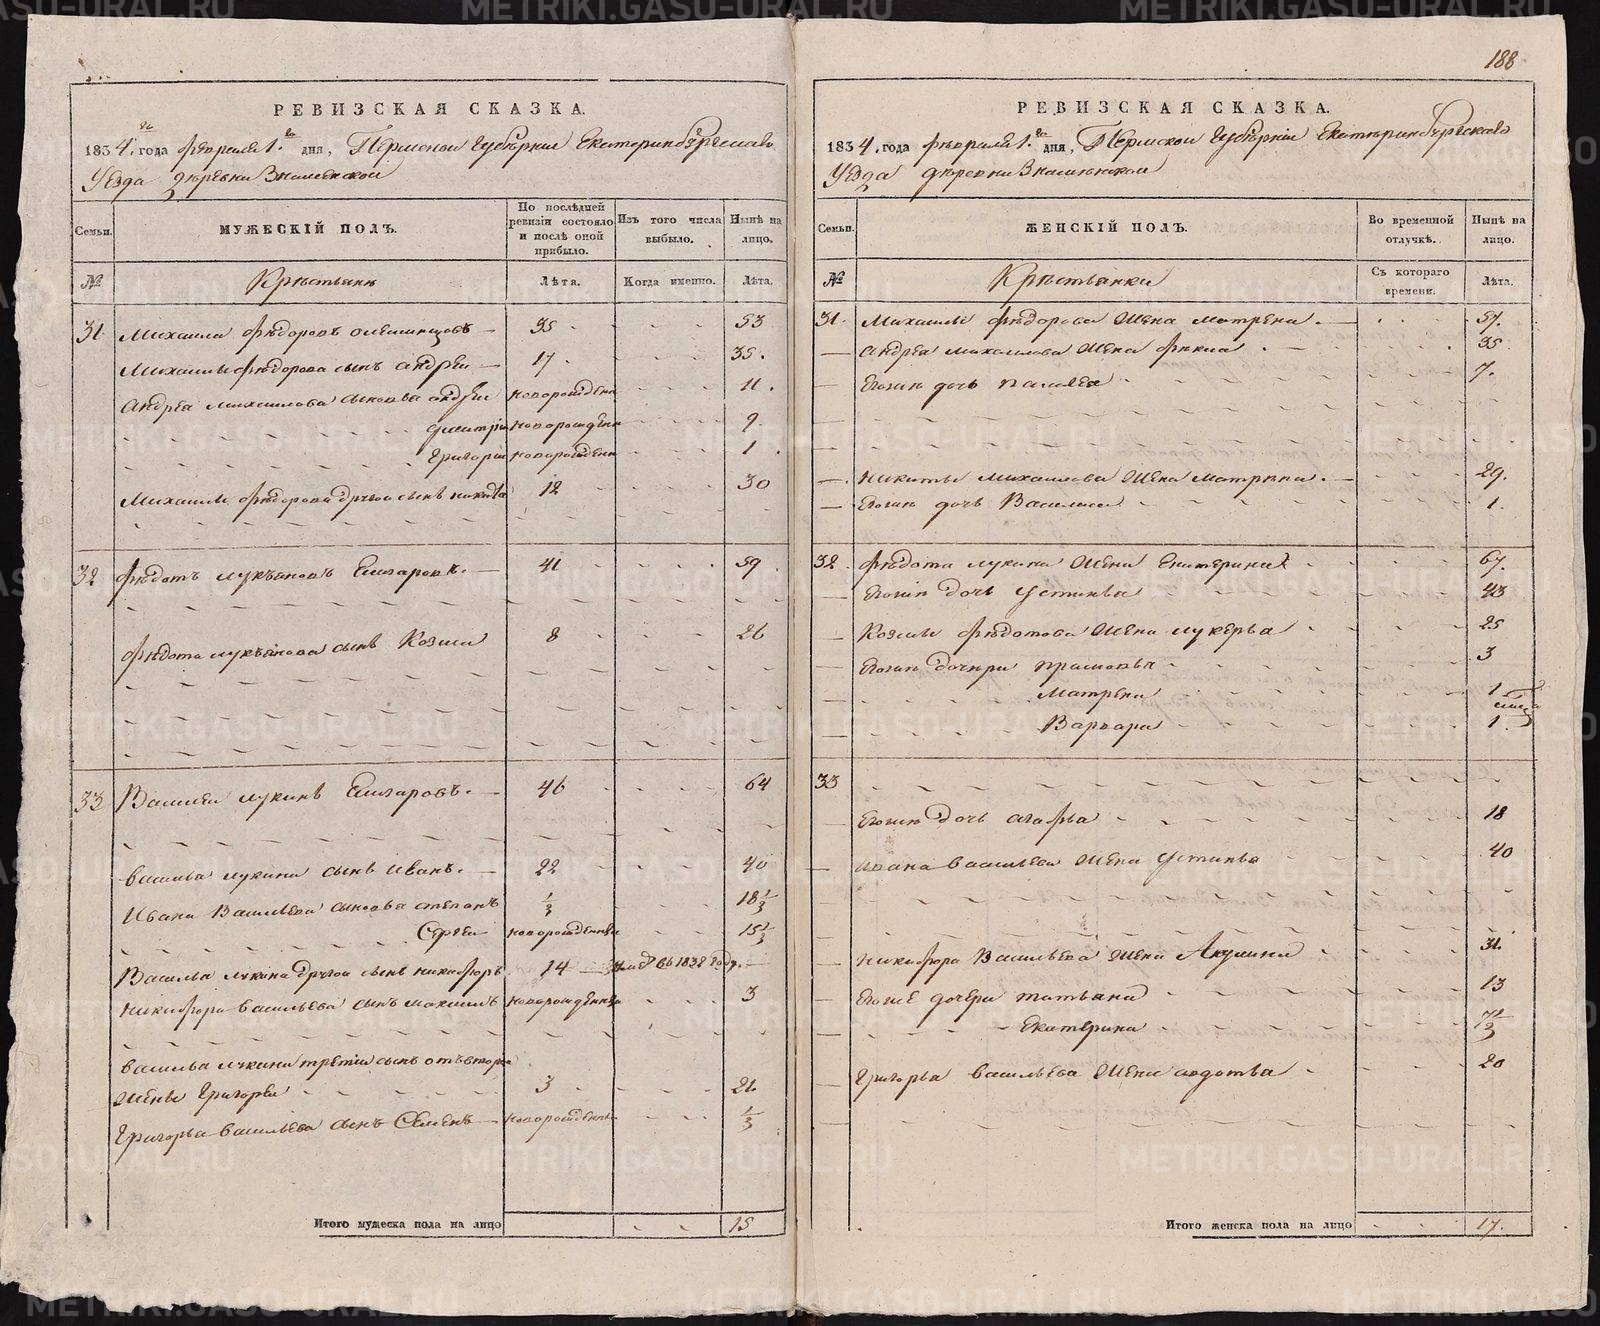 188
РЕВИЗСКАЯ СКАЗКА.
1834.го года февраля 1.го дня, Пермской Губернии Екатеринбургскаго
Уезда деревни Знаменской
Семьи.
МУЖЕСКІЙ ПОЛЪ.
По послѣдней ревизіи состояло и послѣ оной прибыло.
Изъ того числа выбыло.
Нынѣ на лицо.
№
Крестьяне
Лѣта.
Когда именно.
Лѣта.
31 Михаила Федоровъ 35 53
Михаилы Федорова сынъ Андреи 17. 35.
Андрея Михаилова сыновья Андреи новорожденъ 11.
Дмитріи новорожденъ 9.
Григореи новорожденъ 1.
Михаилы Федорова другои сынъ Никита 12 30
32 Федотъ Лукьяновъ Елизаровъ. 41 59
Федота Лукьянова сынъ Козма 8 26
33 Василеи Лукинъ Елизаровъ. 46 64
Василья Лукина сынъ Иванъ. 22 40
Ивана Васильева сыновья Степанъ 1/3 18 1/3
Сергеи новорожденны 15 1/3
Василья Лукина другои сынъ Никифоръ 14 въ 1832 году.
Никифора Васильева сынъ Максимъ новорожденны 3
Василья Лукина третіи сынъ отъ второи
жены Григореи 3 21.
Григорья Васильева сынъ Семенъ новорожденны 1/3
Итого мужеска пола на лицо 15
РЕВИЗСКАЯ СКАЗКА.
1834.го года февраля 1.го дня, Пермской Губерніи Екатеринбургскаго
Уезда деревни Знаменской
Семьи.
ЖЕНСКІЙ ПОЛЪ.
Во временной отлучкѣ.
Нынѣ на лицо.
№
Крестьянки
Съ котораго времени.
Лѣта.
31. Михаилы Федорова жена Матрена 57.
Андрея Михаилова жена Фекла 35
Егоже дочь Палагея 7.
Никиты Михаилова жена Матрена. 29.
Егоже дочь Василиса 1.
32. Федота Лукина жена Екатерина 67.
Егоже дочь Устинья 43
Козмы Федотова жена Лукерья 25
Егоже дочери Прасковья 3
Матрена 1
Варвара 1.
33
Егоже дочь Агафья 18
Ивана Васильева жена Устинья 40
Никифора Васильева жена Акулина 31.
Егоже дочери Татьяна 13
Екатерина 7 1/3
Григорья Васильева жена Авдотья 20
Итого женска пола на лицо 17.
METRIKI.GASO-URAL.RU